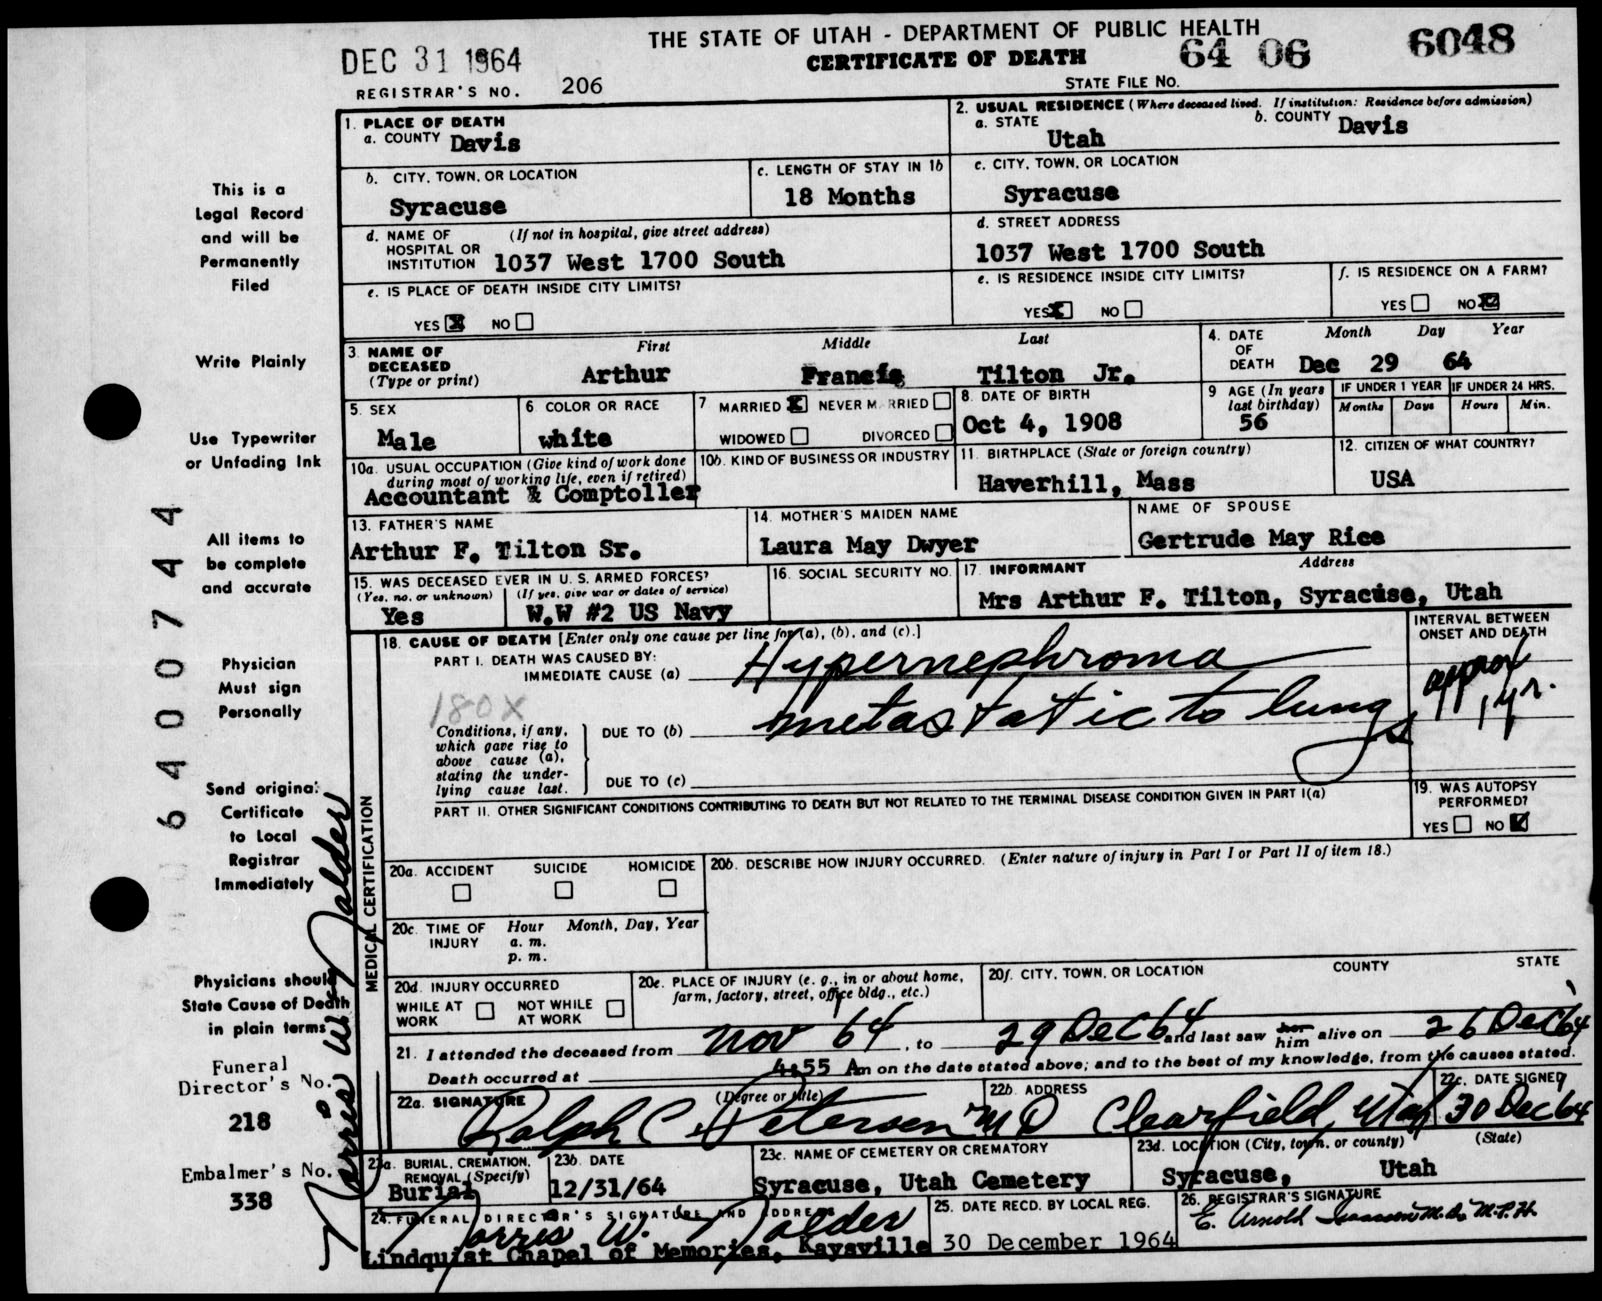 THE STATE OF UTAH - DEPARTMENT OF PUBLIC HEALTH
CERTIFICATE OF DEATH
DEC 31 1964
64 06 6048
REGISTRAR'S NO. 206
STATE FILE NO.
This is a
Legal Record
and will be
Permanently
Filed
Write Plainly
Use Typewriter
or Unfading Ink
All items to
be complete
and accurate
Physician
Must sign
Personally
Send original
Certificate
to Local
Registrar
Immediately
Physicians should
State Cause of Death
in plain terms
Funeral
Director's No.
218
Embalmer's No.
338
6400744
Norris W. Nalder
1. PLACE OF DEATH
a. COUNTY Davis
2. USUAL RESIDENCE (Where deceased lived. If institution: Residence before admission)
a. STATE Utah
b. COUNTY Davis
b. CITY, TOWN, OR LOCATION
Syracuse
c. LENGTH OF STAY IN 1b
18 Months
c. CITY, TOWN, OR LOCATION
Syracuse
d. NAME OF HOSPITAL OR INSTITUTION (If not in hospital, give street address)
1037 West 1700 South
d. STREET ADDRESS
1037 West 1700 South
e. IS PLACE OF DEATH INSIDE CITY LIMITS?
YES X NO
e. IS RESIDENCE INSIDE CITY LIMITS?
YES X NO
f. IS RESIDENCE ON A FARM?
YES NO X
3. NAME OF DECEASED (Type or print)
First Middle Last
Arthur Francis Tilton Jr.
4. DATE OF DEATH
Month Day Year
Dec 29 64
5. SEX
Male
6 COLOR OR RACE
white
7 MARRIED X NEVER MARRIED
WIDOWED DIVORCED
8. DATE OF BIRTH
Oct 4, 1908
9 AGE (In years last birthday)
56
IF UNDER 1 YEAR
Months Days
IF UNDER 24 HRS.
Hours Min.
10a. USUAL OCCUPATION (Give kind of work done during most of working life, even if retired)
Accountant & Comptoller
10b. KIND OF BUSINESS OR INDUSTRY
11. BIRTHPLACE (State or foreign country)
Haverhill, Mass
12. CITIZEN OF WHAT COUNTRY?
USA
13. FATHER'S NAME
Arthur F. Tilton Sr.
14. MOTHER'S MAIDEN NAME
Laura May Dwyer
NAME OF SPOUSE
Gertrude May Rice
15. WAS DECEASED EVER IN U. S. ARMED FORCES?
(Yes, no, or unknown) (If yes, give war or dates of service)
Yes W.W #2 US Navy
16. SOCIAL SECURITY NO.
17. INFORMANT Address
Mrs Arthur F. Tilton, Syracuse, Utah
MEDICAL CERTIFICATION
18. CAUSE OF DEATH [Enter only one cause per line for (a), (b), and (c).]
INTERVAL BETWEEN ONSET AND DEATH
PART I. DEATH WAS CAUSED BY:
IMMEDIATE CAUSE (a) Hypernephroma
approx 1 yr.
180X
Conditions, if any, which gave rise to above cause (a), stating the underlying cause last.
DUE TO (b) metastatic to lungs
DUE TO (c)
PART II. OTHER SIGNIFICANT CONDITIONS CONTRIBUTING TO DEATH BUT NOT RELATED TO THE TERMINAL DISEASE CONDITION GIVEN IN PART I(a)
19. WAS AUTOPSY PERFORMED?
YES NO
20a. ACCIDENT SUICIDE HOMICIDE
20b. DESCRIBE HOW INJURY OCCURRED. (Enter nature of injury in Part I or Part II of item 18.)
20c. TIME OF INJURY Hour Month, Day, Year
a. m.
p. m.
20d. INJURY OCCURRED
WHILE AT WORK NOT WHILE AT WORK
20e. PLACE OF INJURY (e. g., in or about home, farm, factory, street, office bldg., etc.)
20f. CITY, TOWN, OR LOCATION COUNTY STATE
21. I attended the deceased from Nov 64, to 29 Dec 64 and last saw her him alive on 26 Dec 64
Death occurred at 4:55 Am on the date stated above; and to the best of my knowledge, from the causes stated.
22a. SIGNATURE (Degree or title)
Ralph C Petersen MD
22b. ADDRESS
Clearfield, Utah
22c. DATE SIGNED
30 Dec 64
23a. BURIAL, CREMATION, REMOVAL (Specify)
Burial
23b. DATE
12/31/64
23c. NAME OF CEMETERY OR CREMATORY
Syracuse, Utah Cemetery
23d. LOCATION (City, town, or county) (State)
Syracuse, Utah
24. FUNERAL DIRECTOR'S SIGNATURE AND ADDRESS
Norris W. Nalder
Lindquist Chapel of Memories, Kaysville
25. DATE RECD. BY LOCAL REG.
30 December 1964
26. REGISTRAR'S SIGNATURE
E. Arnold Isaacson M.D. M.P.H.